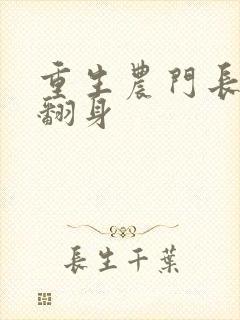 重生農門長
翻身
長生千葉